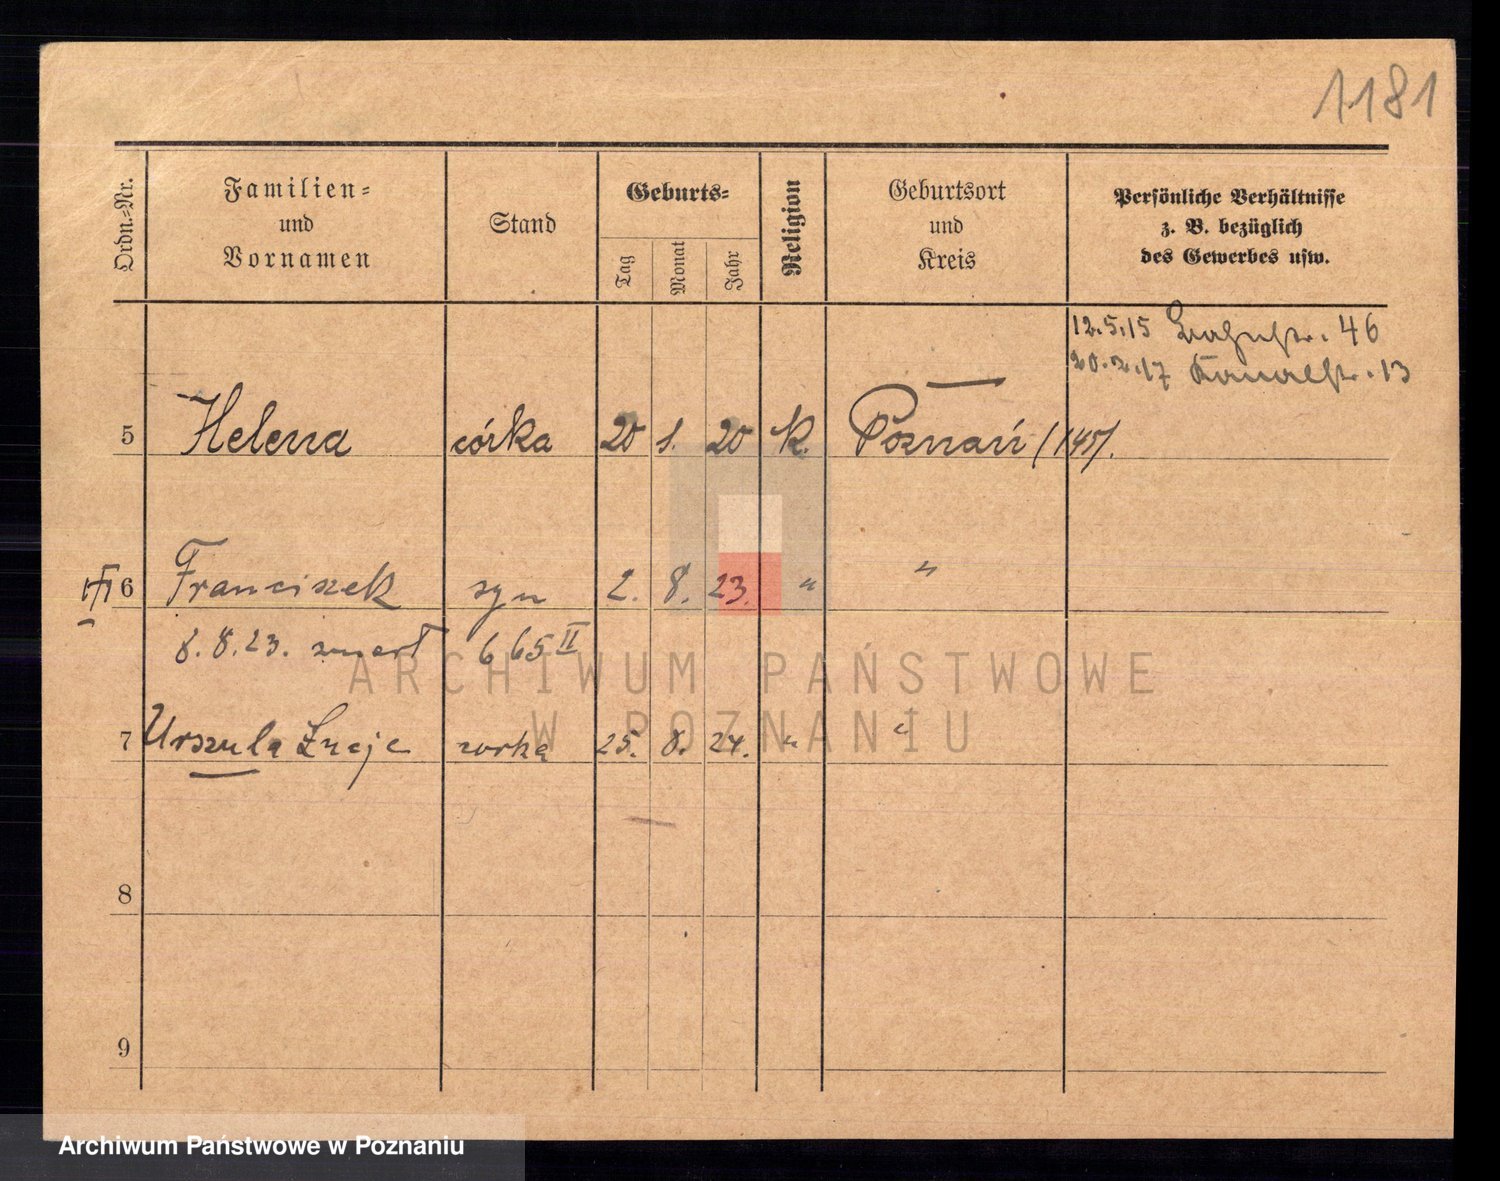 1181
Ordn.=Nr.
Familien=
und
Vornamen
Stand
Geburts=
Tag
Monat
Jahr
Religion
Geburtsort
und
Kreis
Persönliche Verhältnisse
z. B. bezüglich
des Gewerbes usw.
12.5.15 46
20.2.17 Kanalstr. 13
5 Helena córka 20 1. 20 k. Poznań (145).
6 Franciszek syn 2. 8. 23. " "
8.8.23. zmarł 665 II
7 Urszula Łucja córka 25. 8. 24. " "
8
9
ARCHIWUM PAŃSTWOWE
W POZNANIU
Archiwum Państwowe w Poznaniu